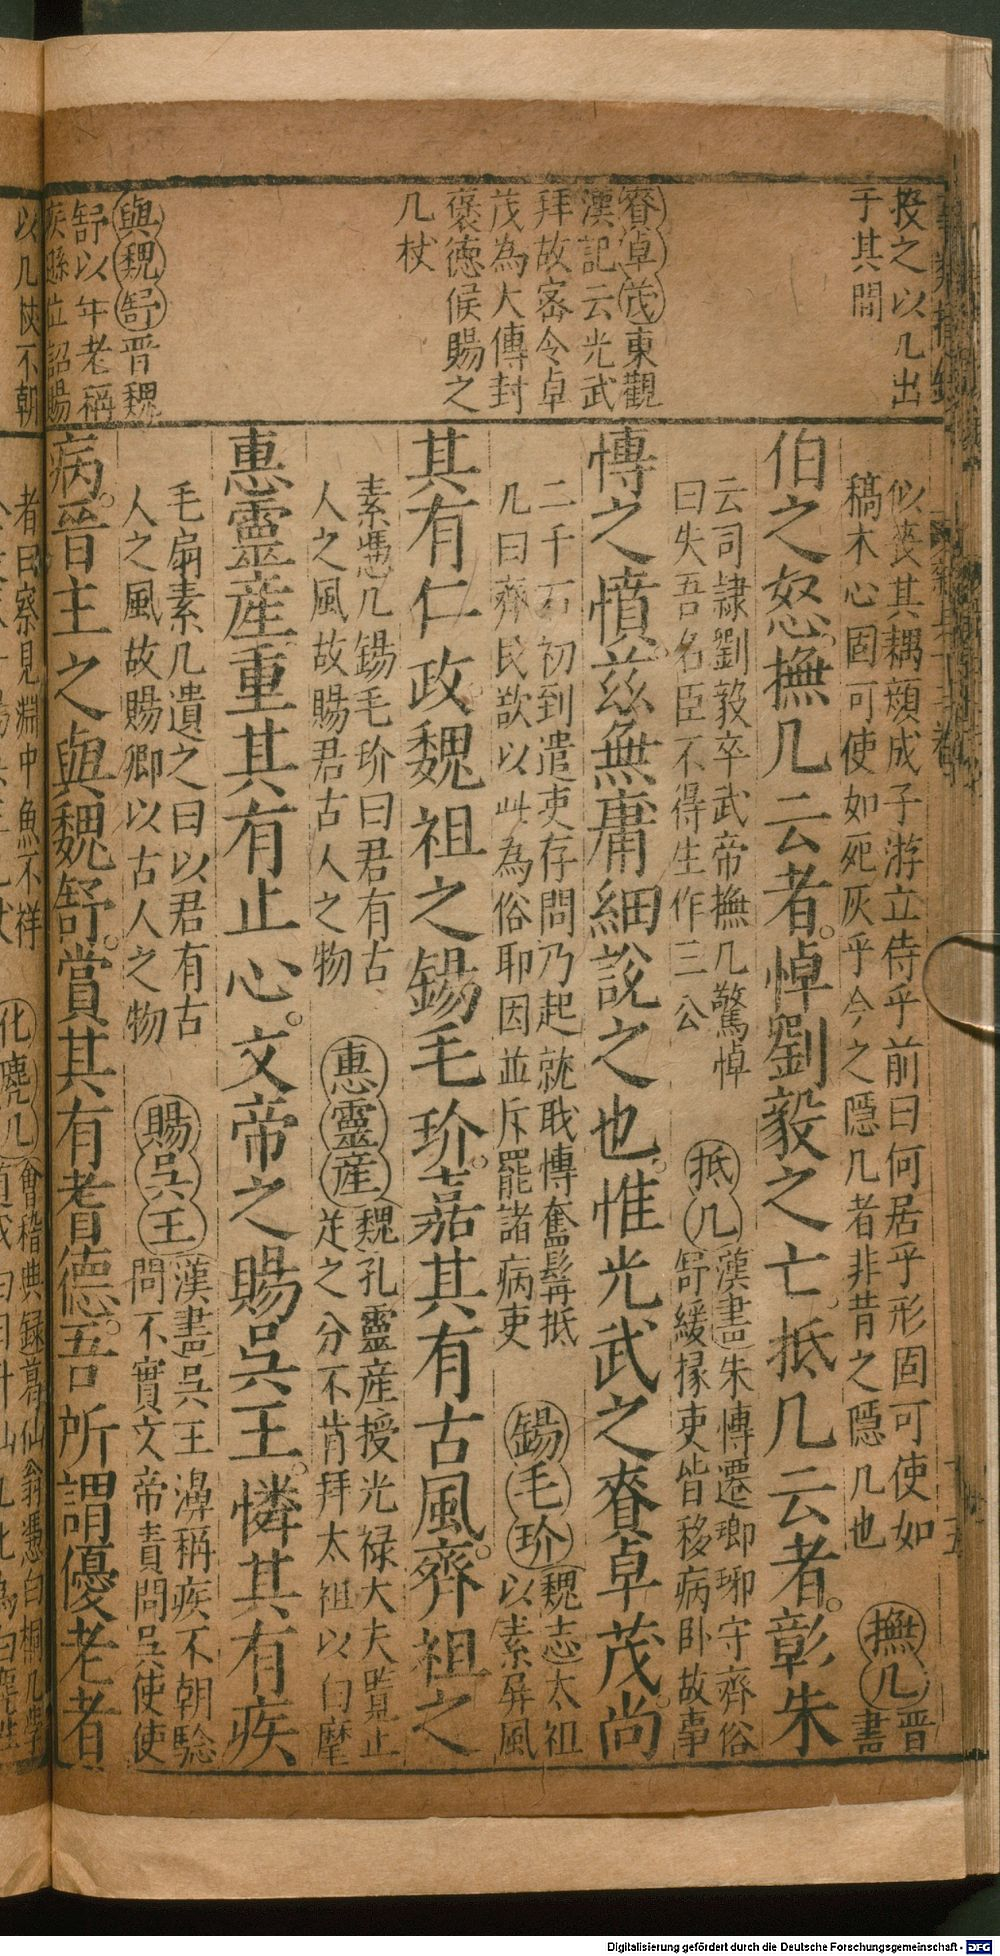 投之以几出
于其間
賚卓茂東觀
漢記云光武
拜故密令卓
茂為大傳封
褒德候賜之
几杖
與魏舒晋魏
舒以年老稱
疾遜位詔賜
以几杖不朝
似喪其耦頬成子游立侍乎前曰何居乎形固可使如
稿木心固可使如死灰乎今之隱几者非昔之隱几也
撫几晋
書
伯之怒。撫几云者。悼劉毅之亡。抵几云者。彰朱
云司隷劉毅卒武帝撫几驚悼
曰失吾名臣不得生作三公
抵几漢書朱慱遷瑯琊守齊俗
舒緩掾吏皆移病卧故事
慱之憤。兹無庸細說之也。惟光武之賚卓茂。尚
二千石初到遣吏存問乃起就職慱奮髯抵
几曰齊民欲以此為俗耶因並斥罷諸病吏
錫毛玠魏志太祖
以素屏風
其有仁政。魏祖之錫毛玠。嘉其有古風。齊祖之
素憑几錫毛玠曰君有古
人之風故賜君古人之物
惠靈産魏孔靈産授光禄大夫覧止
足之分不肯拜太祖以白麾
惠靈産重其有止心。文帝之賜呉王。憐其有疾
毛扇素几遺之曰以君有古
人之風故賜卿以古人之物
賜呉王漢書呉王濞稱疾不朝驗
問不實文帝責問呉使使
病。晉主之與魏舒。賞其有耆德。吾所謂優老者
者曰察見淵中魚不祥
化麂几會稽典録葛仙翁憑白桐几學
Digitalisierung gefördert durch die Deutsche Forschungsgemeinschaft - DFG